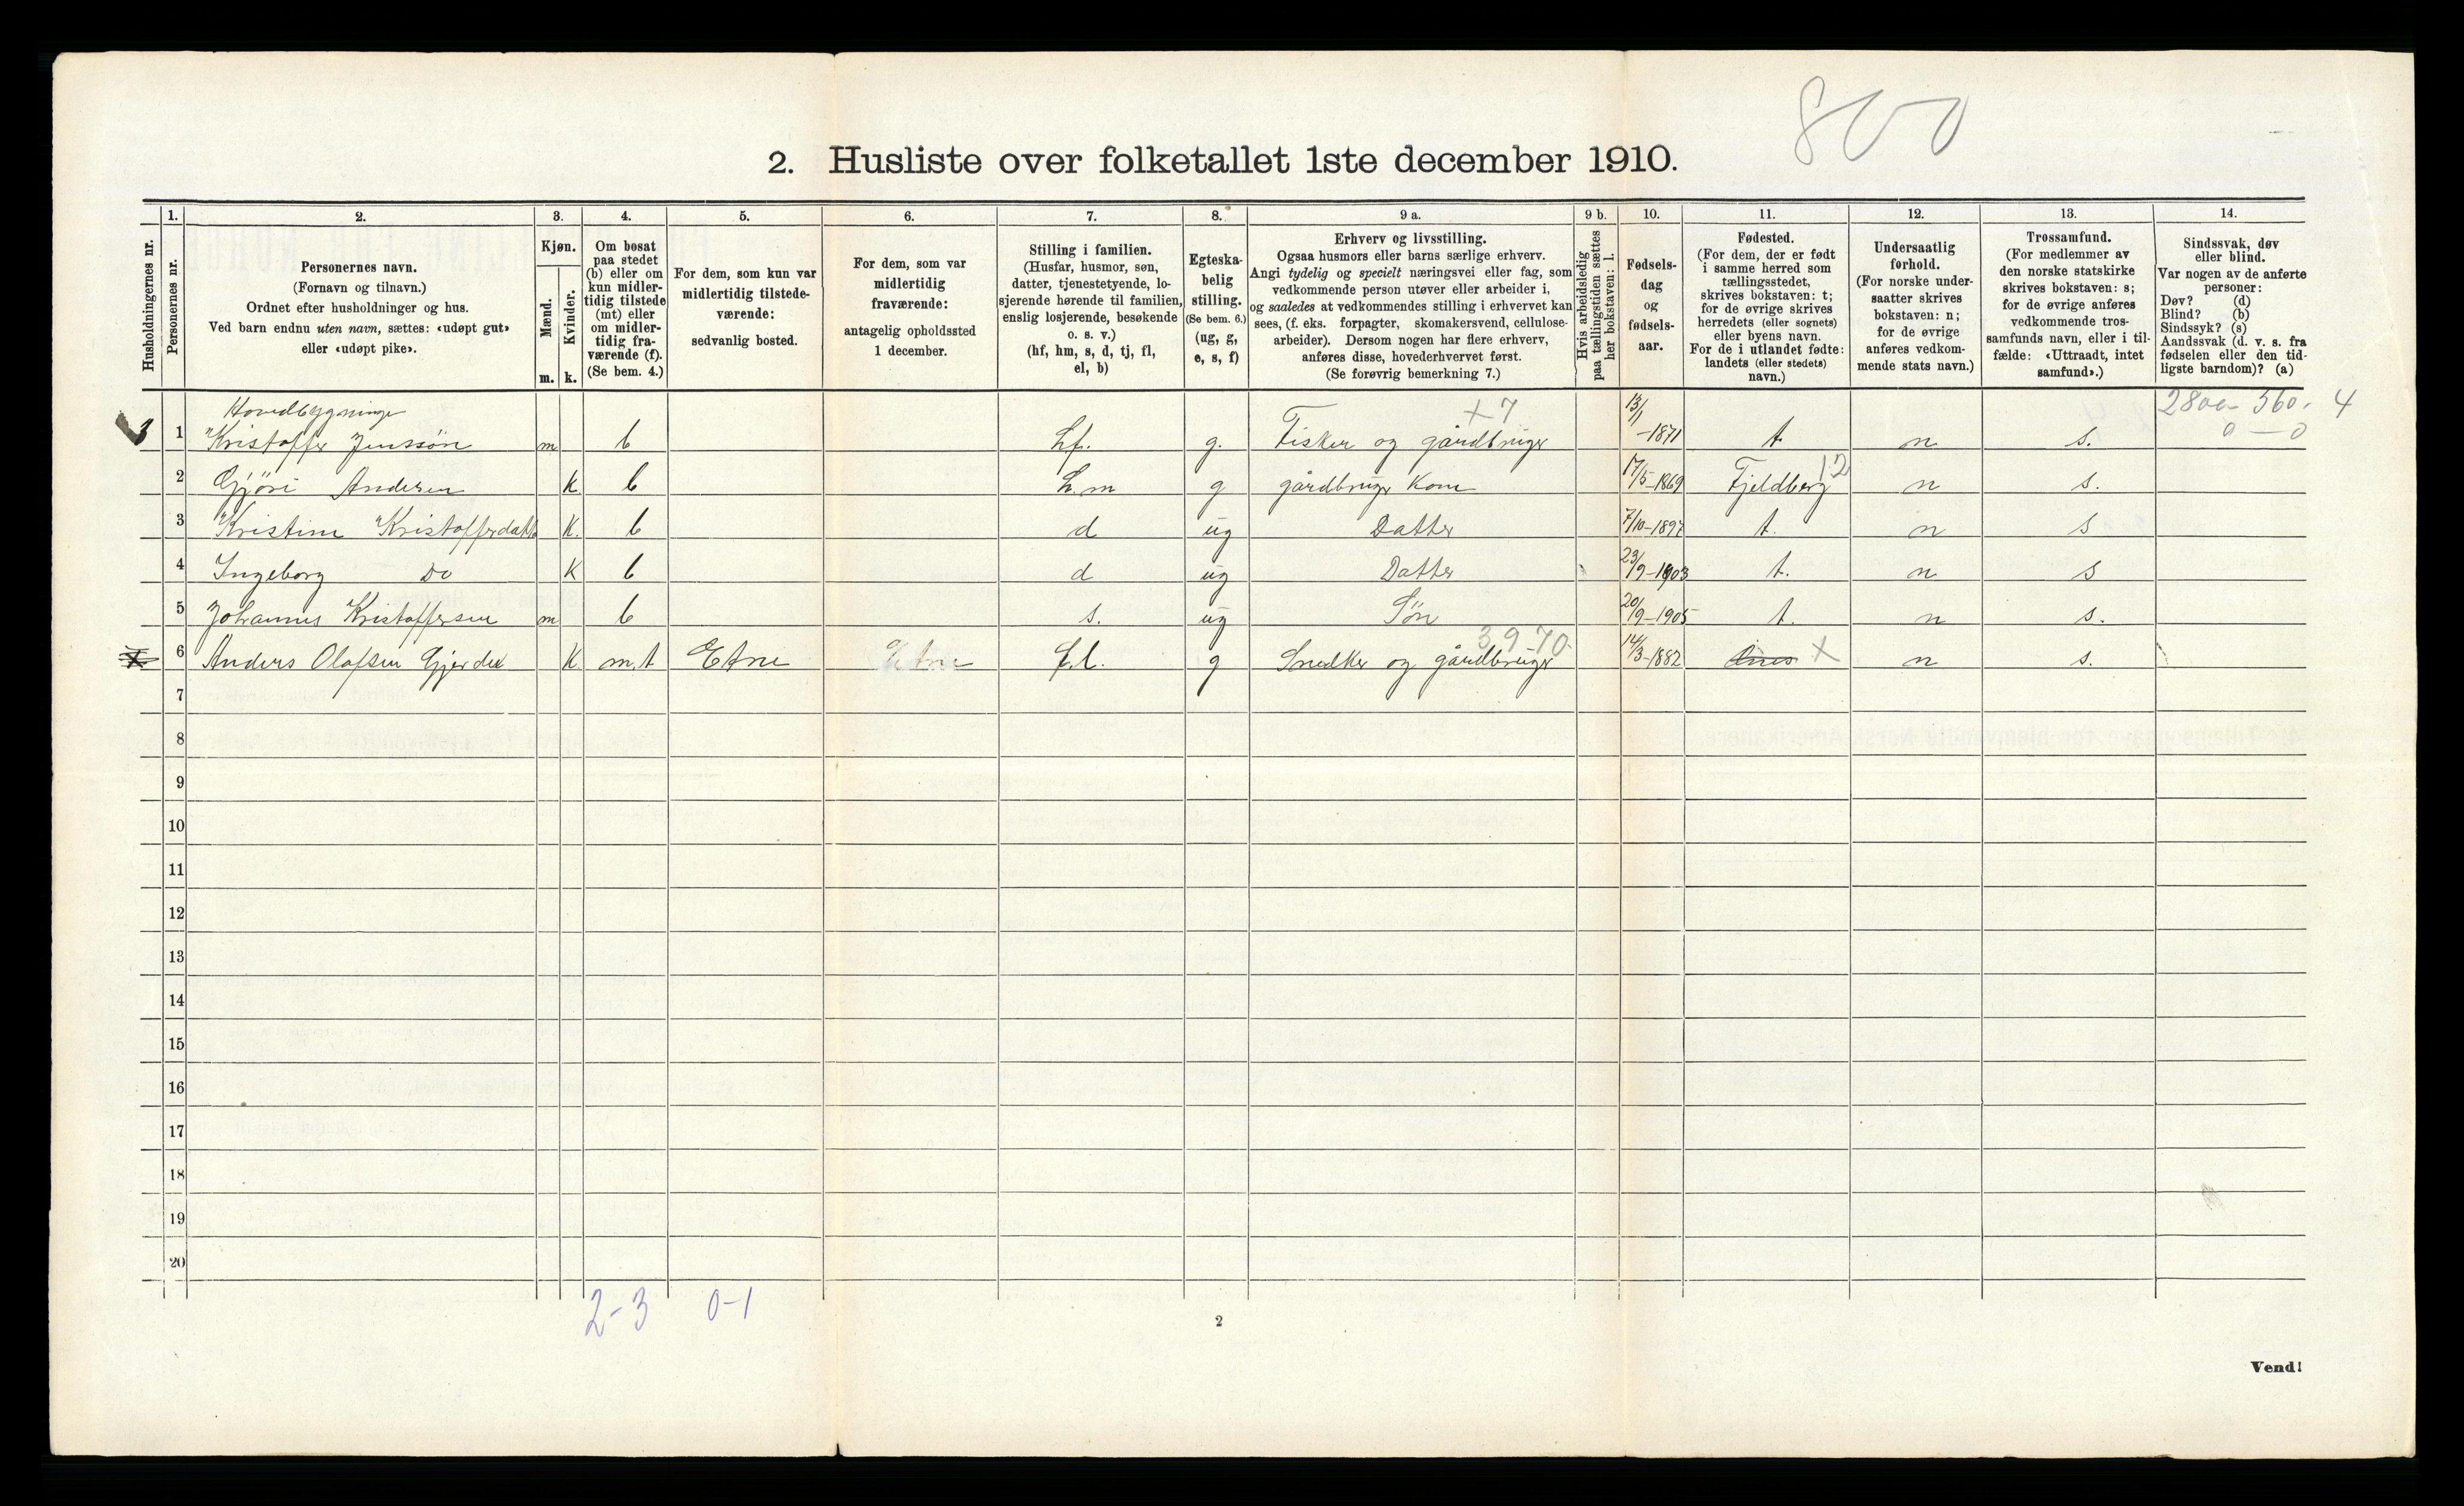 800
2. Husliste over folketallet 1ste december 1910.
Husholdningernes nr.
1. Personernes nr.
2. Personernes navn. (Fornavn og tilnavn.) Ordnet efter husholdninger og hus. Ved barn endnu uten navn, sættes: «udøpt gut» eller «udøpt pike».
3. Kjøn. Mænd. m. Kvinder. k.
4. Om bosat paa stedet (b) eller om kun midlertidig tilstede (mt) eller om midlertidig fraværende (f). (Se bem. 4.)
5. For dem, som kun var midlertidig tilstedeværende: sedvanlig bosted.
6. For dem, som var midlertidig fraværende: antagelig opholdssted 1 december.
7. Stilling i familien. (Husfar, husmor, søn, datter, tjenestetyende, losjerende hørende til familien, enslig losjerende, besøkende o. s. v.) (hf, hm, s, d, tj, fl, el, b)
8. Egteskabelig stilling. (Se bem. 6.) (ug, g, e, s, f)
9 a. Erhverv og livsstilling. Ogsaa husmors eller barns særlige erhverv. Angi tydelig og specielt næringsvei eller fag, som vedkommende person utøver eller arbeider i, og saaledes at vedkommendes stilling i erhvervet kan sees, (f. eks. forpagter, skomakersvend, cellulosearbeider). Dersom nogen har flere erhverv, anføres disse, hovederhvervet først. (Se forøvrig bemerkning 7.)
9 b. Hvis arbeidsledig paa tællingstiden sættes her bokstaven: l.
10. Fødselsdag og fødselsaar.
11. Fødested. (For dem, der er født i samme herred som tællingsstedet, skrives bokstaven: t; for de øvrige skrives herredets (eller sognets) eller byens navn. For de i utlandet fødte: landets (eller stedets) navn.)
12. Undersaatlig forhold. (For norske undersaatter skrives bokstaven: n; for de øvrige anføres vedkommende stats navn.)
13. Trossamfund. (For medlemmer av den norske statskirke skrives bokstaven: s; for de øvrige anføres vedkommende trossamfunds navn, eller i tilfælde: «Uttraadt, intet samfund».)
14. Sindssvak, døv eller blind. Var nogen av de anførte personer: Døv? (d) Blind? (b) Sindssyk? (s) Aandssvak (d. v. s. fra fødselen eller den tidligste barndom)? (a)
Hovedbygninge +7 2800 - 560. 4
3 1 Kristoffer Jenssøn m b h.f. g. Fisker og gårdbruger 13/1 -1871 t. n s. 0 — 0
2 Gjøri Andersen K b h.m g gårdbruger Kone 17/5-1869 Fjeldberg 12 n s.
3 Kristine Kristofferdatt K. b d ug Datter 7/10-1897 t. n s
4 Ingeborg Do K b d ug Datter 23/9-1903 t. n s
5 Johannes Kristoffersen m b s. ug Søn 20/9-1905 t. n s.
3970.
6 Anders Olafsen Gjerde K m.t Etne Etne f.l. g Snedker og gårdbruger 14/3-1882 X n s.
7
8
9
10
11
12
13
14
15
16
17
18
19
20
2-3 0-1
2
Vend!